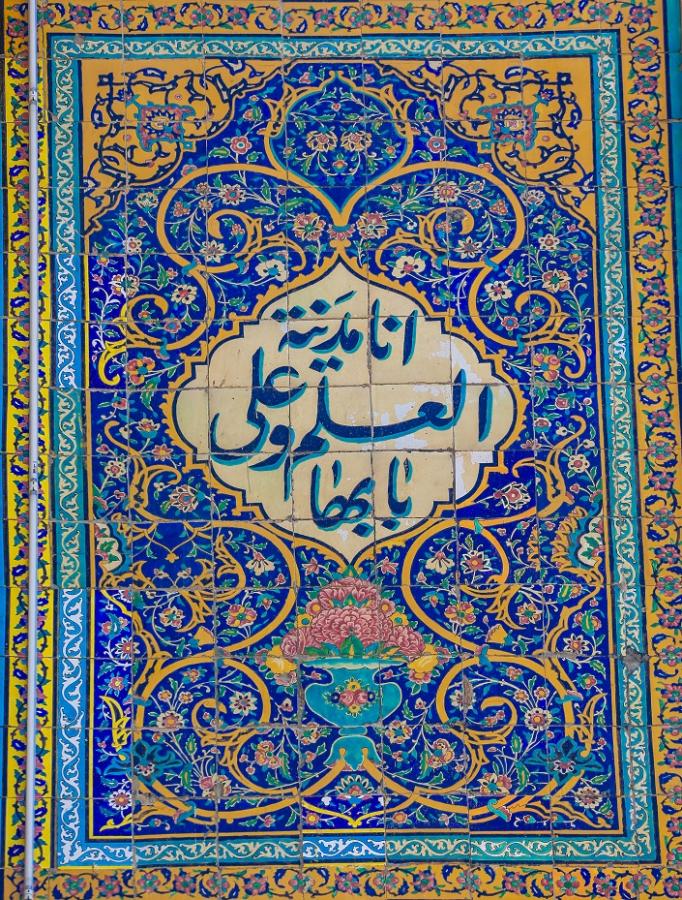 انا مَدینة
العلم و علی
بابها